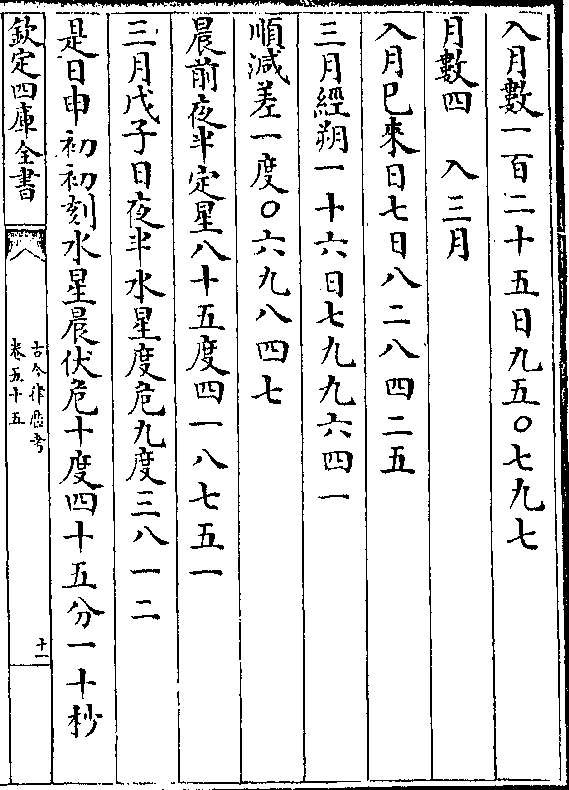 入月數一百二十五日九五〇七九七
月數四　入三月
入月已來日七日八二八四二五
三月經朔一十六日七九九六四一
順減差一度〇六九八四七
晨前夜半定星八十五度四一八七五一
三月戊子日夜半水星度危九度三八一二
是日申初初刻水星晨伏危十度四十五分一十杪
欽定四庫全書
古今律歷考
卷五十五
十一